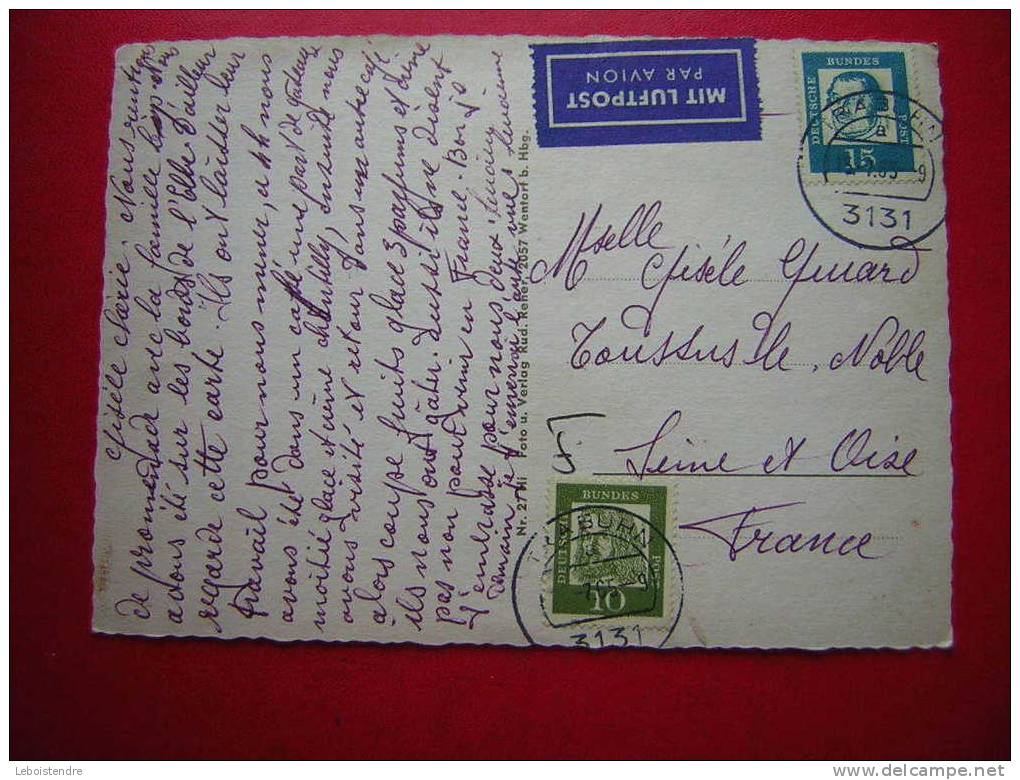 Gisèle chérie. Nous rentrons
de promenade avec la famille
avons été sur les bords de l'Elbe d'ailleurs
regarde cette carte. Ils ont laisser leur
travail pour nous mener, a 4h nous
avons été dans un café, une part de gateau
moitié glace et crème chantilly, ensuite nous
avons visité et retour dans un autre café
alors coupe fruits glace 3 parfums et crème
ils nous ont gâter. aussi ils se disent
pas non pour venir en France. Bon je
t'embrasse pour nous deux. Tienne
demain je t'enverrai l'autre vue
Nr. 27 Hi Foto u. Verlag Rud. Reher, 2057 Wentorf b. Hbg.
MIT LUFTPOST
PAR AVION
DEUTSCHE BUNDES POST
15
3131
Mselle Gisèle Guiard
Toussus le Noble
F
Seine et Oise
France
DEUTSCHE BUNDES POST
10
3131
Leboistendre
www.delcampe.net